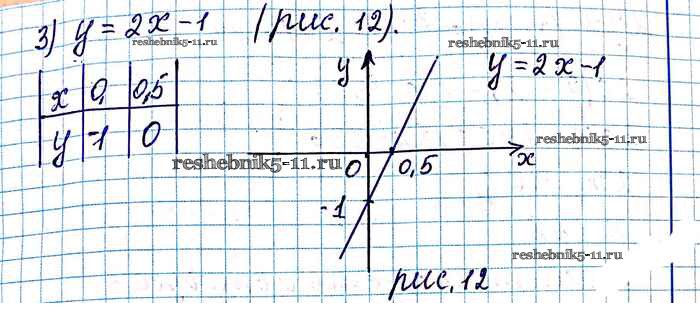 3) y = 2x - 1 (рис. 12).
reshebnik5-11.ru
reshebnik5-11.ru
y
y = 2x - 1
x 0 0,5
y -1 0
reshebnik5-11.ru
reshebnik5-11.ru
0 0,5 x
-1
reshebnik5-11.ru
рис. 12